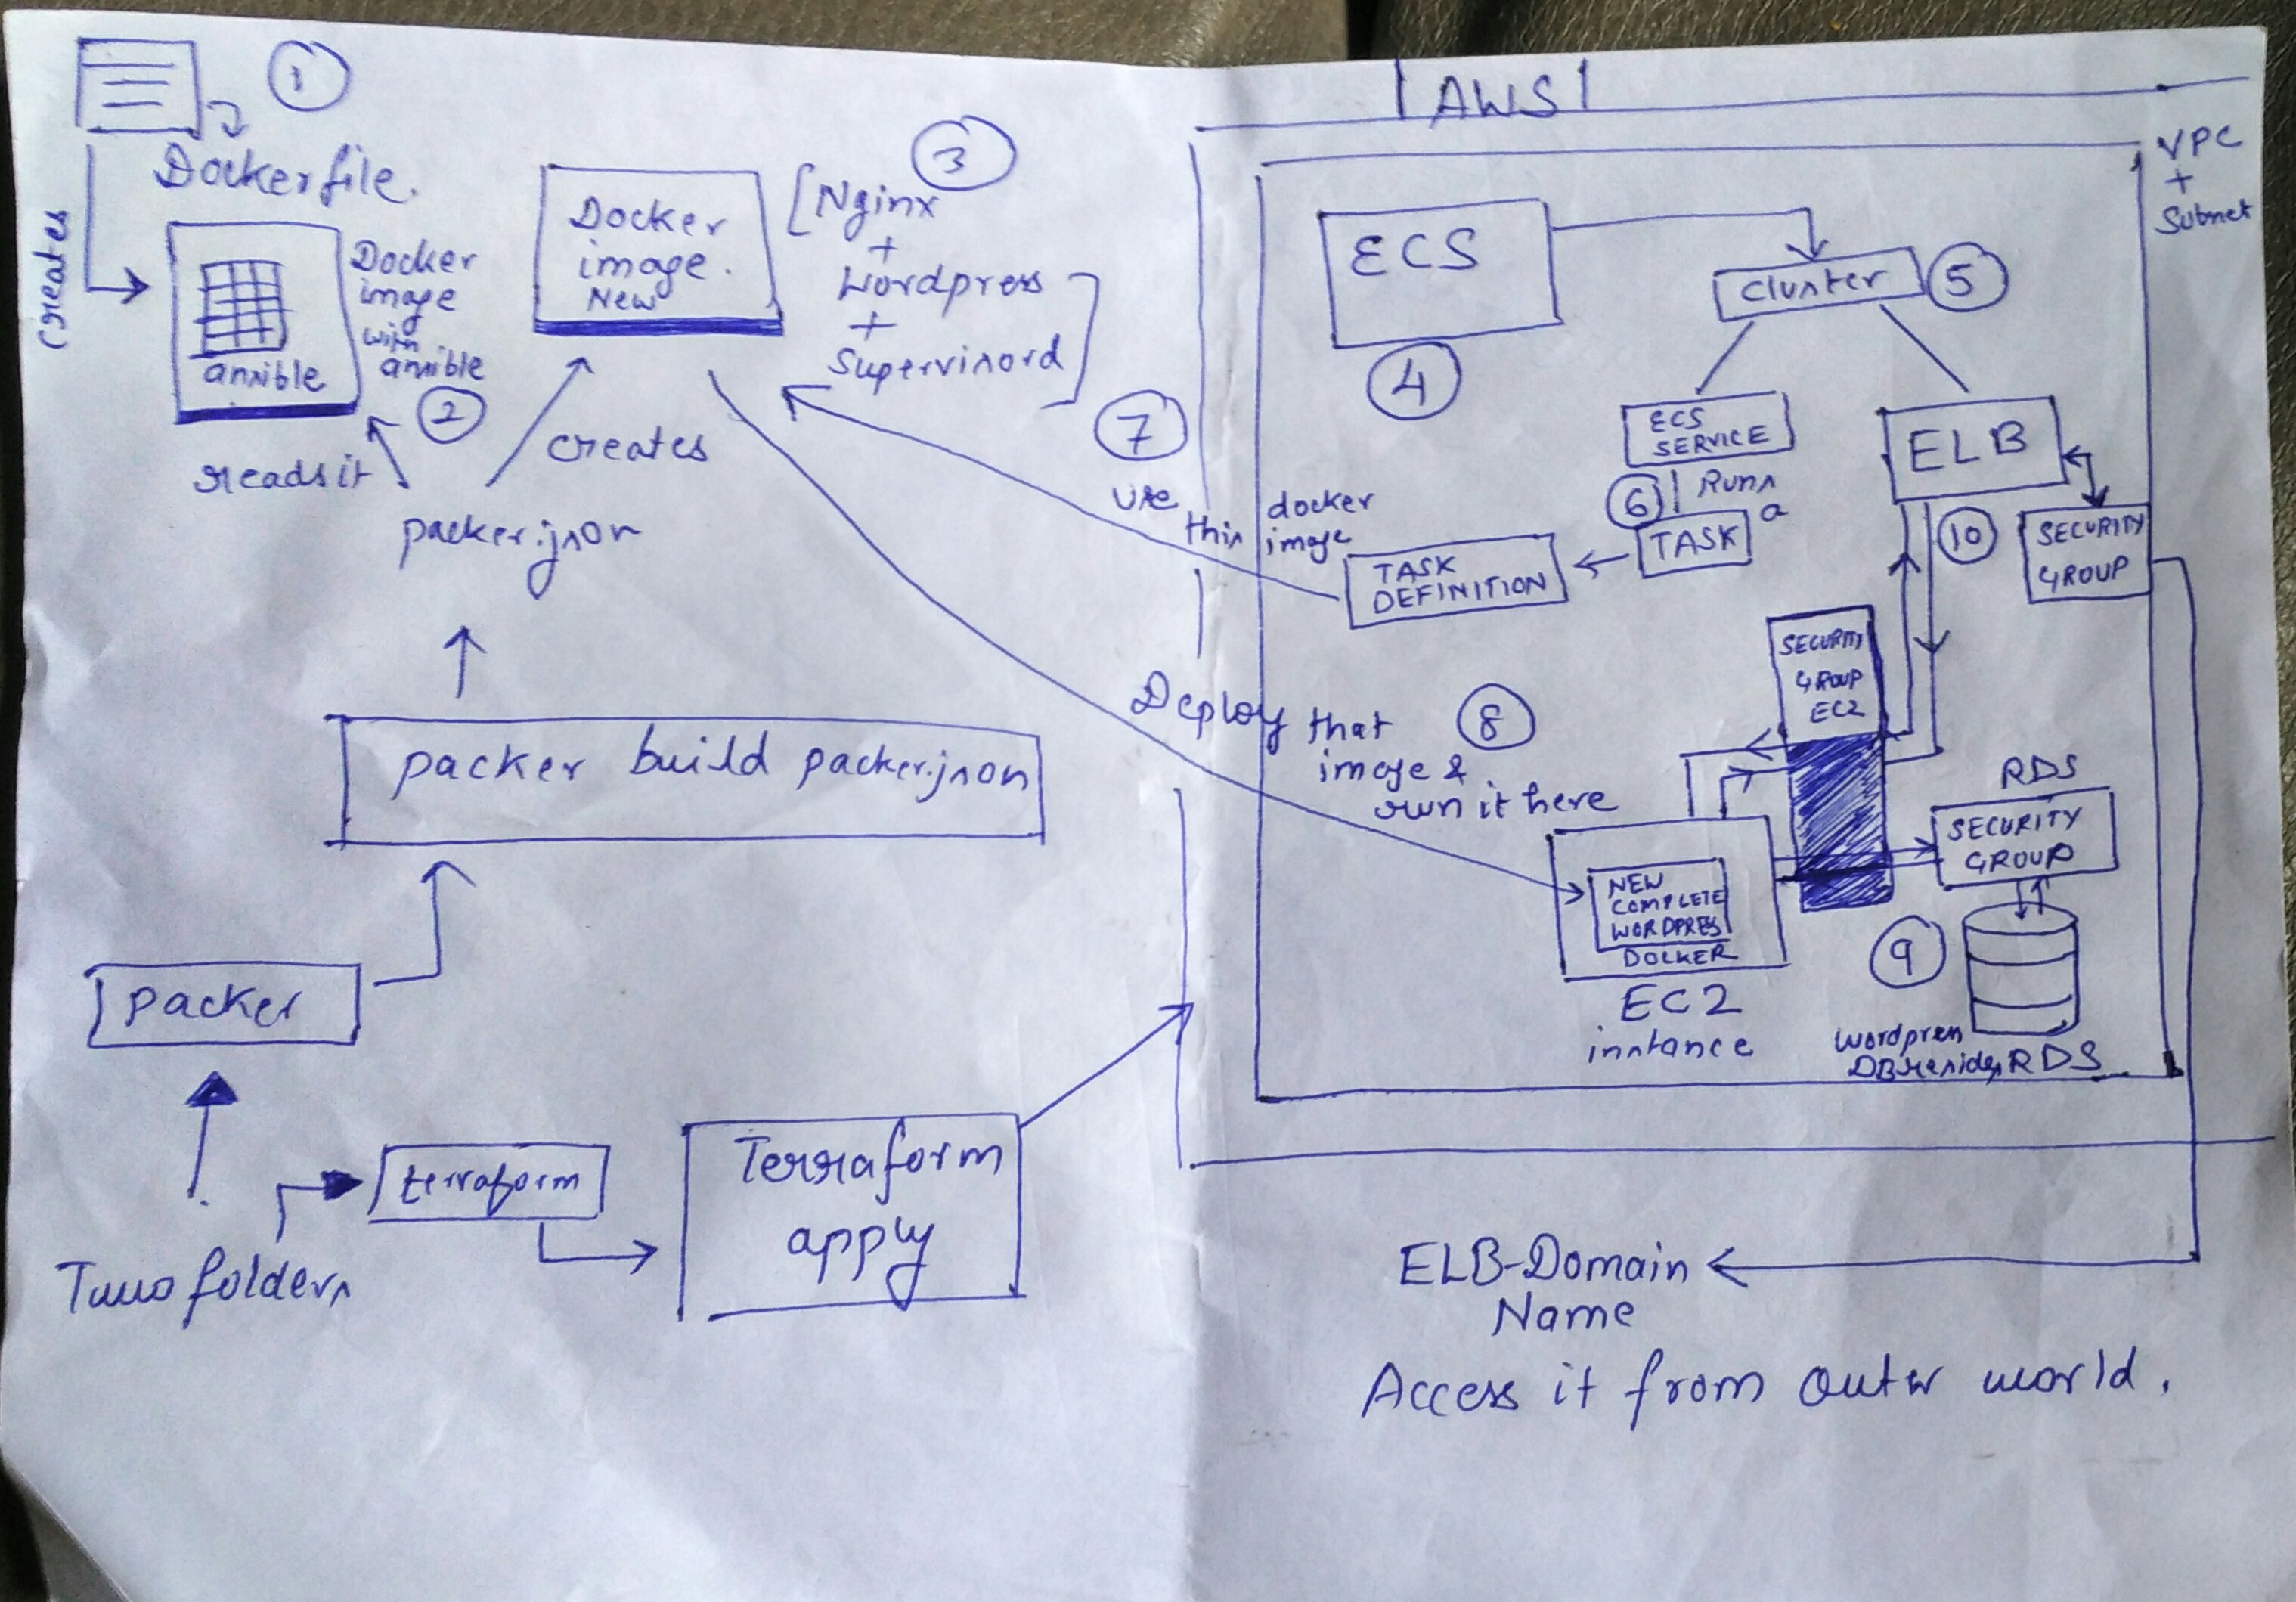 1
Dockerfile.
creates
ansible
Docker
image
with
ansible
2
reads it
packer.json
creates
Docker
image.
New
3
[Nginx
+
Wordpress
+
Supervisord]
packer build packer.json
packer
Two folders
terraform
Terraform
apply
AWS
VPC
+
Subnet
ECS
4
Cluster
5
ECS
SERVICE
6
Runs
a
TASK
TASK
DEFINITION
7
use this docker
image
ELB
10
SECURITY
GROUP
SECURITY
GROUP
EC2
Deploy that
image &
run it here
8
NEW
COMPLETE
WORDPRESS
DOCKER
EC2
instance
RDS
SECURITY
GROUP
9
Wordpress
DB resides RDS
ELB-Domain
Name
Access it from outer world.